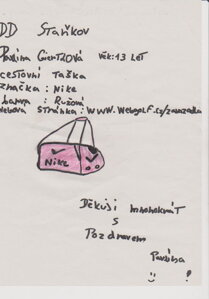 DD Staňkov
Pavlína Giertlová věk:13 LET
cestovní Taška
značka : Nike
barva : Růžová
webova stránka : www.Webgelf.cz/zanzadka
Nike
Děkuji mnohokrát
S
Pozdravem
Pavlína